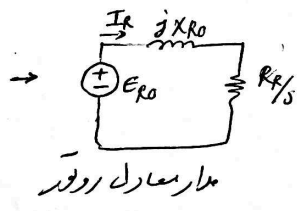 I_R
jX_R0
+
−
E_R0
R_R/s
مدار معادل روتور